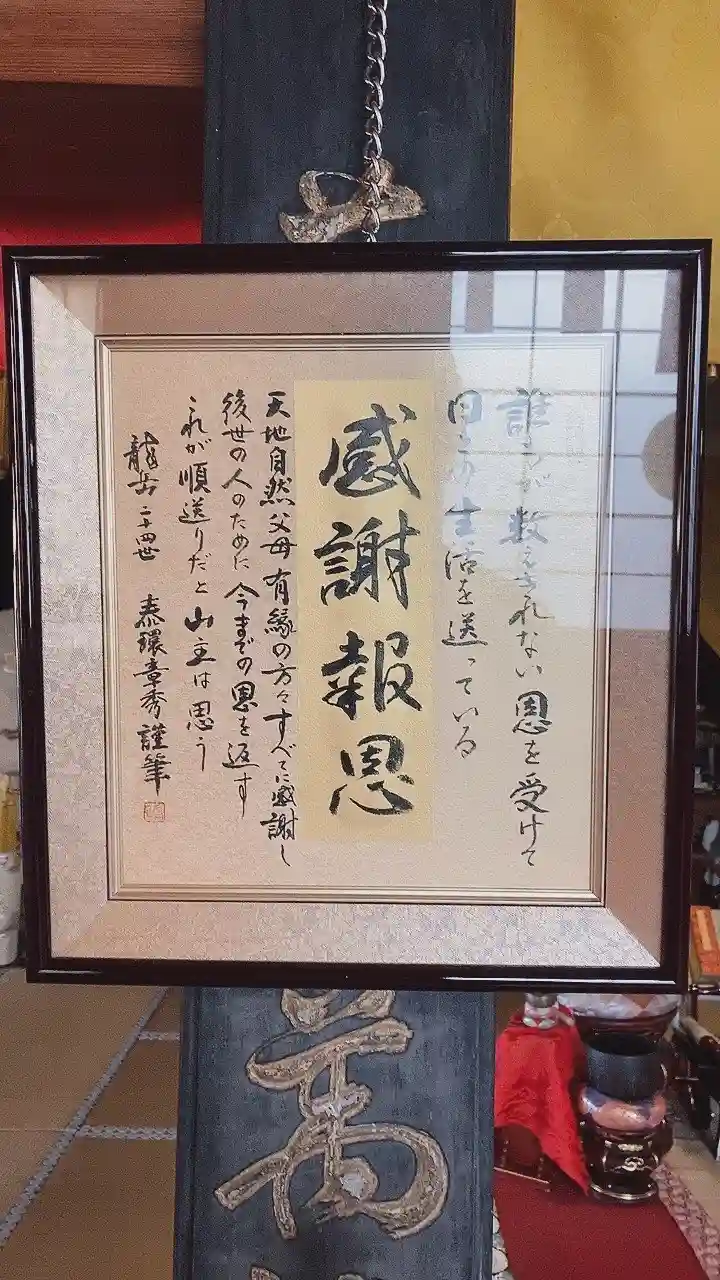 誰もが数えきれない恩を受けて
日々の生活を送っている
感謝報恩
天地自然父母有縁の方々すべてに感謝し
後世の人のために今までの恩を返す
これが順送りだと山主は思う
龍岳二十四世 泰環章秀謹筆
萬